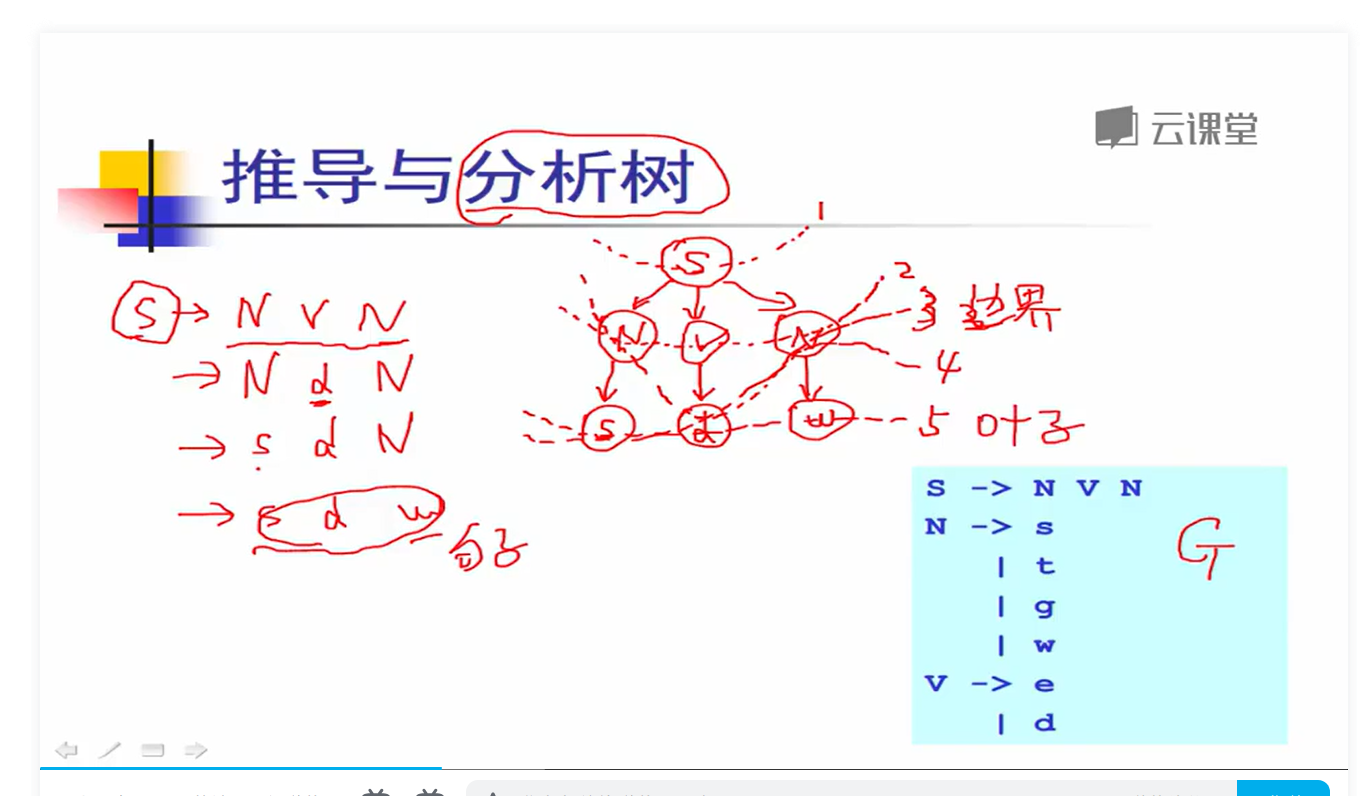 云课堂
推导与分析树
S → N V N
→ N d N
→ s d N
→ s d w
句子
1
S
2
N V N
3 边界
4
s d w
5 叶子
S -> N V N
N -> s
| t
| g
| w
V -> e
| d
G